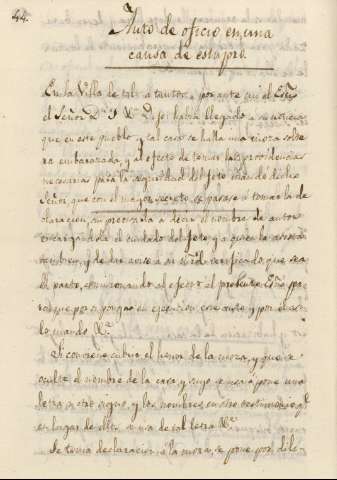 44.
Auto de oficio en una
causa de estupro.
En la Villa de tal: a tantos: por ante mi el Esño
el Señor Dn. J. N. Dijo: había llegado a su noticia
que en este pueblo, y tal casa se halla una moza solte
ra embarazada, y al efecto de tomar las providencias
necesarias para la seguridad del feto mandó dicho
Señor que con el mayor secreto se pasase a tomarla de
claracion, sin precisarla a decir el nombre de autor
encargandola el cuidado del feto, y a quien la asista
tambien, y de dar aviso a su mrd. verificado que sea
el parto, comisionando al efecto el presente Esño pa
ra que ponga en ejecucion este auto, y por el
mando &a.
Si conviene cubrir el honor de la moza, y que se
oculte el nombre de la casa y suyo se usará pone una
letra u otro signo, y los nombres en otro testimonio qe.
en lugar de ella se usa de tal letra &a.
Se toma declaracion a la moza, se pone por dili-